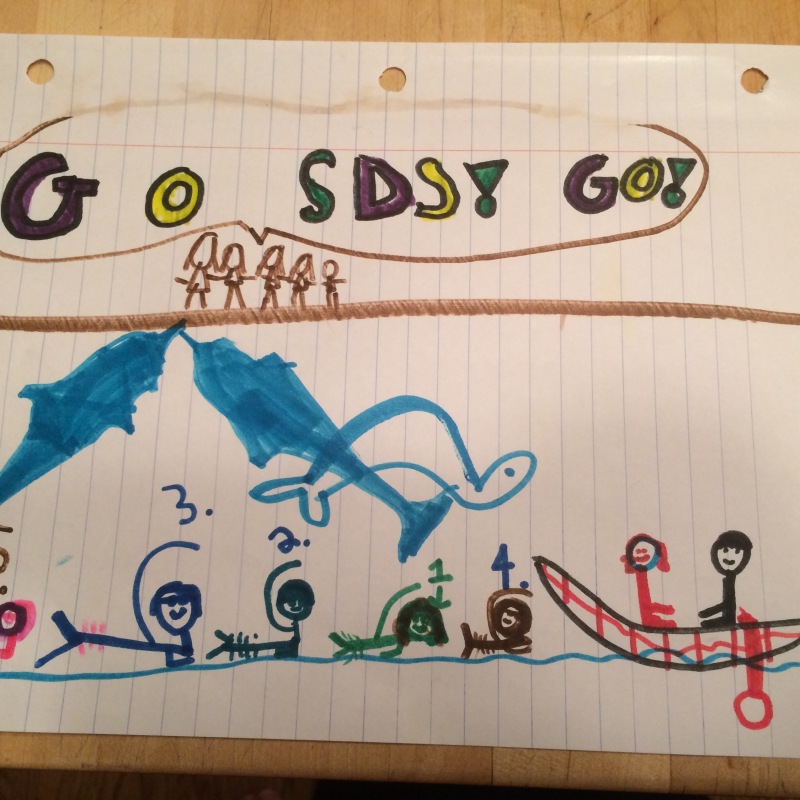 GO SDS! GO!
3.
2.
1
4.